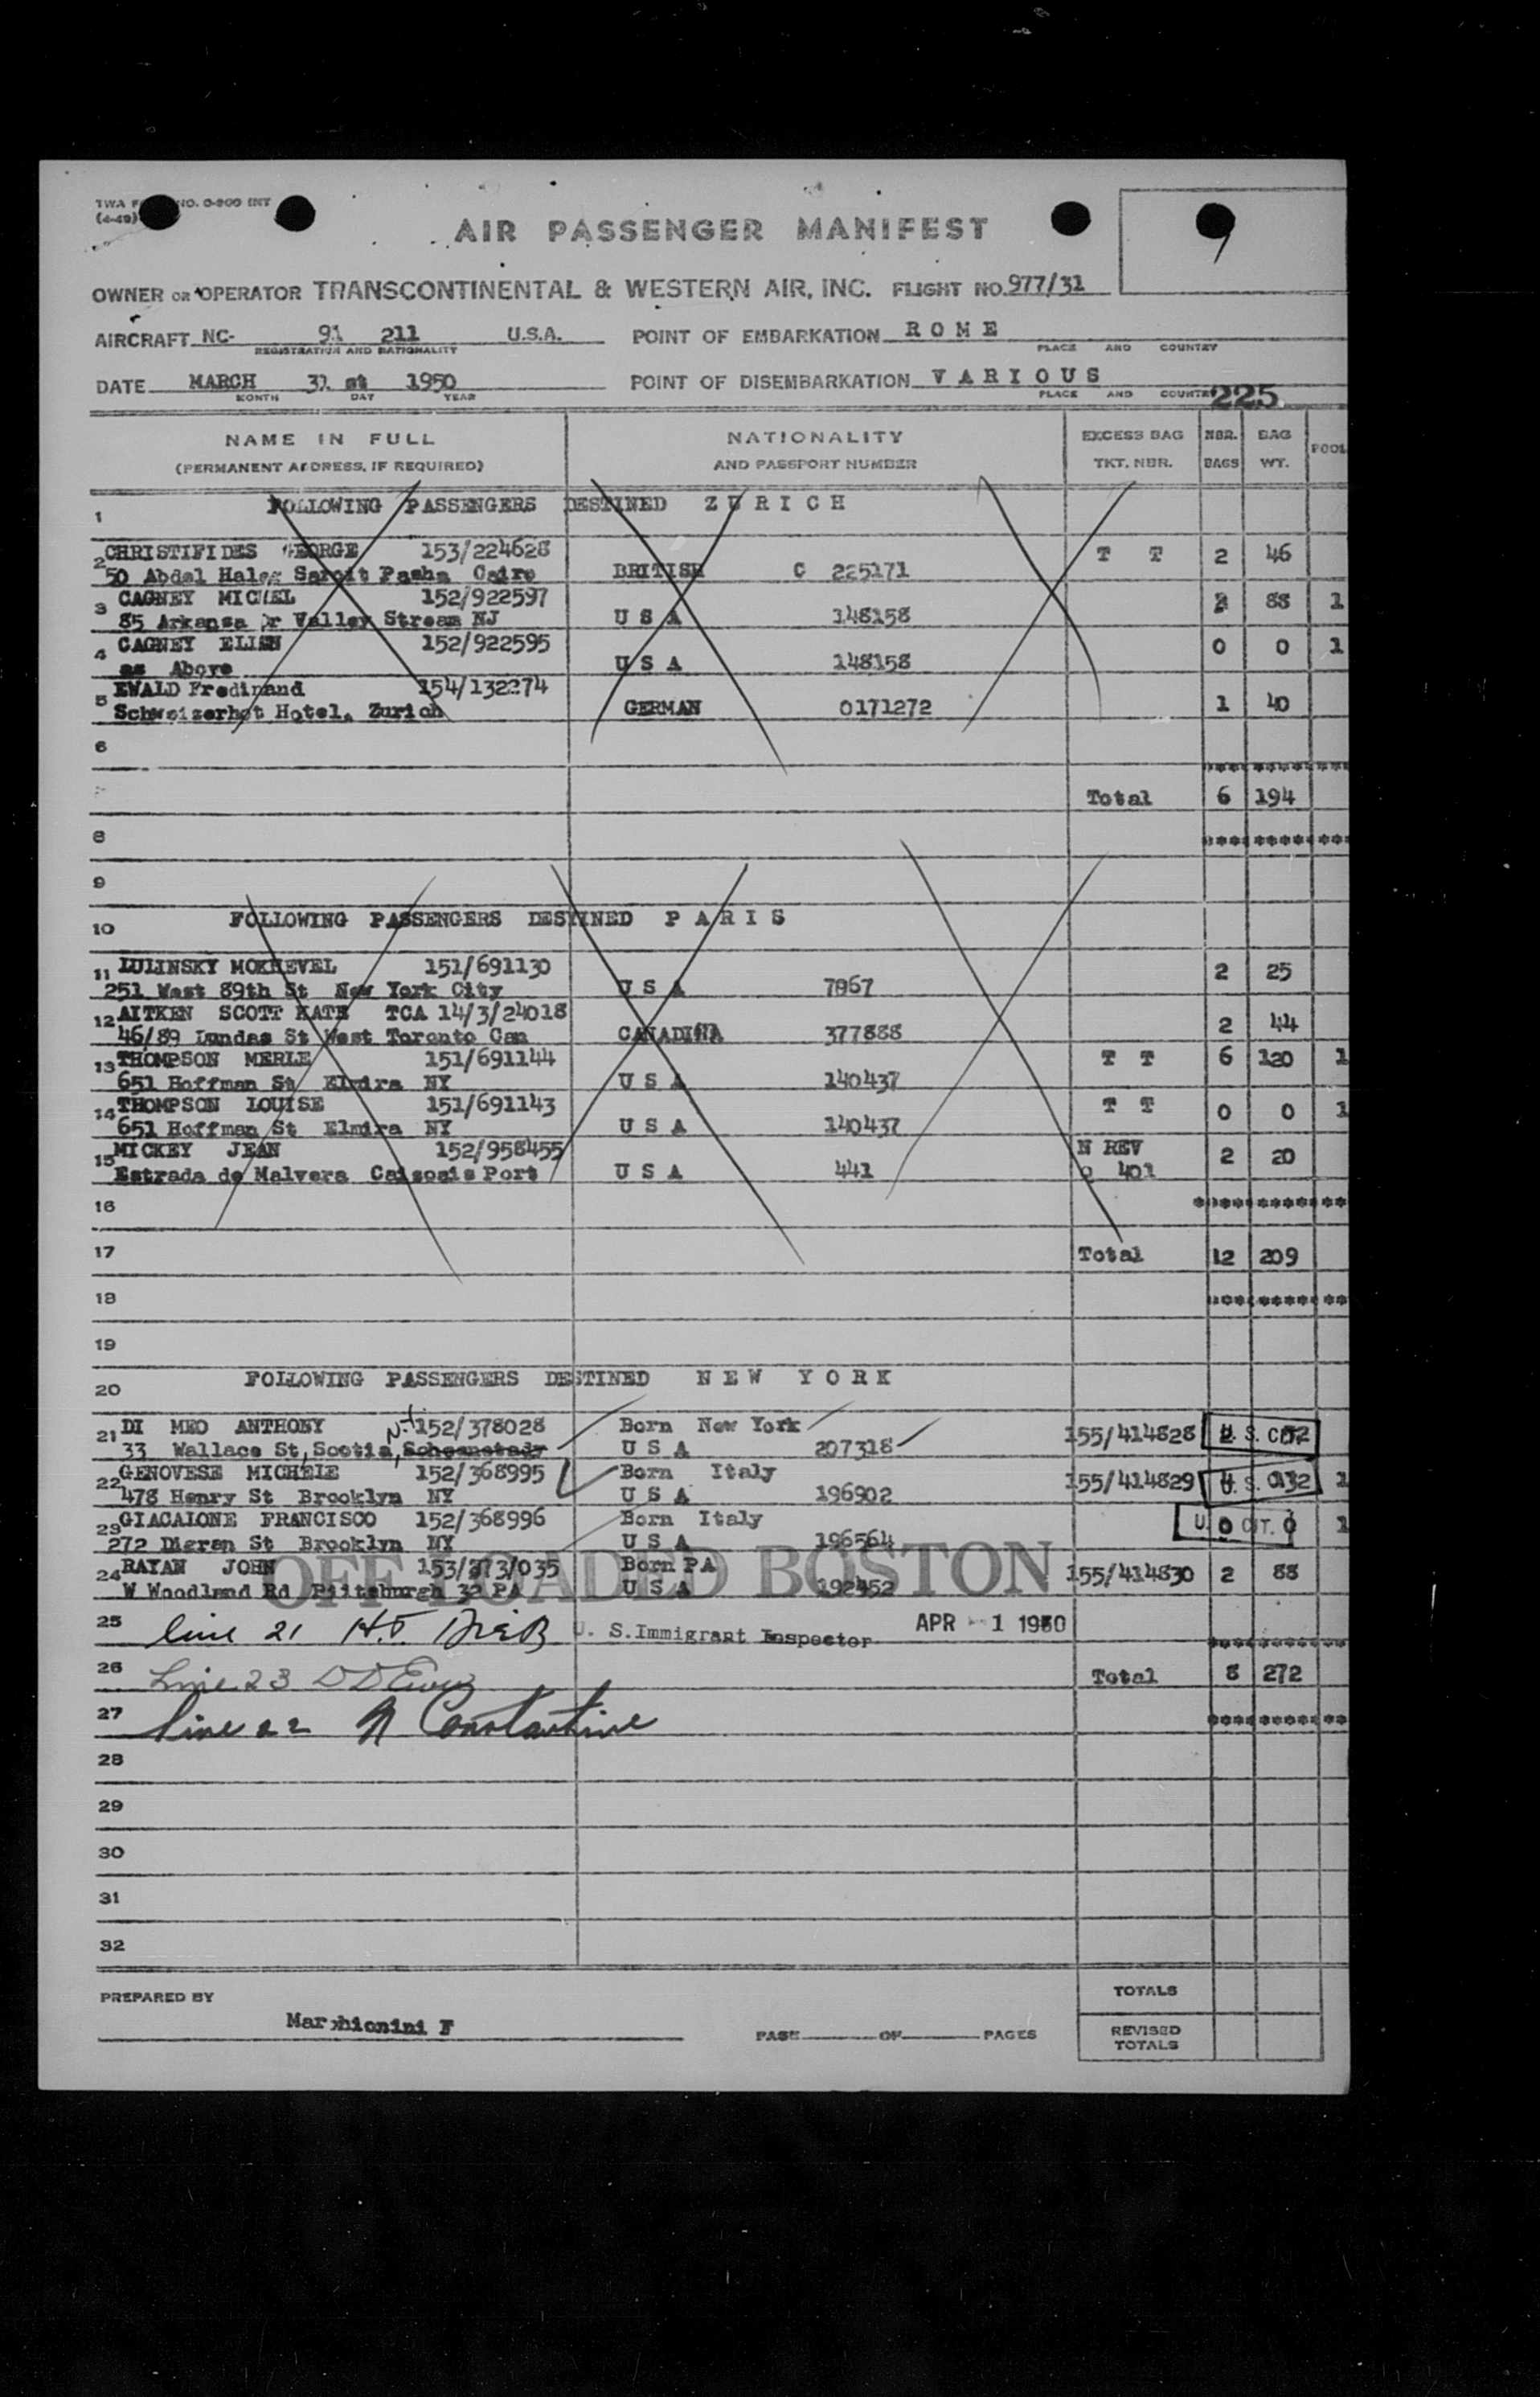 (4-49)
AIR PASSENGER MANIFEST
OWNER OR OPERATOR TRANSCONTINENTAL & WESTERN AIR, INC. FLIGHT NO. 977/31
AIRCRAFT NC- 91 211 U.S.A. POINT OF EMBARKATION R O M E
REGISTRATION AND NATIONALITY PLACE AND COUNTRY
DATE MARCH 31 st 1950 POINT OF DISEMBARKATION V A R I O U S
MONTH DAY YEAR PLACE AND COUNTRY 225
NAME IN FULL NATIONALITY EXCESS BAG NBR. BAG POOL
(PERMANENT ADDRESS, IF REQUIRED) AND PASSPORT NUMBER TKT. NBR. BAGS WT.
1 FOLLOWING PASSENGERS DESTINED Z U R I C H
2 CHRISTIFIDES GEORGE 153/224628 T T 2 46
50 Abdal Saroit Pasha Cairo BRITISH C 225171
3 CAGNEY MICHEL 152/922597 88 1
85 Arkansa Dr Valley Stream NJ U S A 148158
4 CAGNEY 152/922595 0 0 1
as Above U S A 148158
5 EWALD Fredinand 154/132274
Schweizerhot Hotel, Zurich GERMAN 0171272 1 40
6
Total 6 194
8
9
10 FOLLOWING PASSENGERS DESTINED P A R I S
11 LULINSKY 151/691130 2 25
251 West 89th St New York City U S A 7867
12 AITKEN SCOTT KATE TCA 14/3/24018 2 44
46/89 Dundas St West Toronto Can 377888
13 THOMPSON MERLE 151/691144 T T 6 120 1
651 Hoffman St Elmira NY U S A 140437
14 THOMPSON LOUISE 151/691143 T T 0 0 1
651 Hoffman St Elmira NY U S A 140437
15 MICKEY JEAN 152/958455 N REV 2 20
Estrada de Malvera Port U S A 441 401
16
17 Total 12 209
18
19
20 FOLLOWING PASSENGERS DESTINED N E W Y O R K
21 DI MEO ANTHONY 152/378028 Born New York 155/414828 U. S. CIT.
33 Wallace St, Scotia, Schoenstady U S A 207318
22 GENOVESE MICHELE 152/368995 Born Italy 155/414829 U. S. 1
478 Henry St Brooklyn NY U S A 196902
23 GIACALONE FRANCISCO 152/368996 Born Italy U. CIT. 0 1
272 St Brooklyn NY U S A 196564
24 RAYAN JOHN 153/373/035 Born PA 155/414830 2 88
W Woodland Rd Piitsburgh 32 PA U S A 192452
OFF LOADED BOSTON
25 line 21 U. S. Immigrant Inspector APR 1 1950
26 Line 23 Total 8 272
27 line 22 N Constantine
28
29
30
31
32
PREPARED BY TOTALS
Marchionini F PAGE OF PAGES REVISED
TOTALS